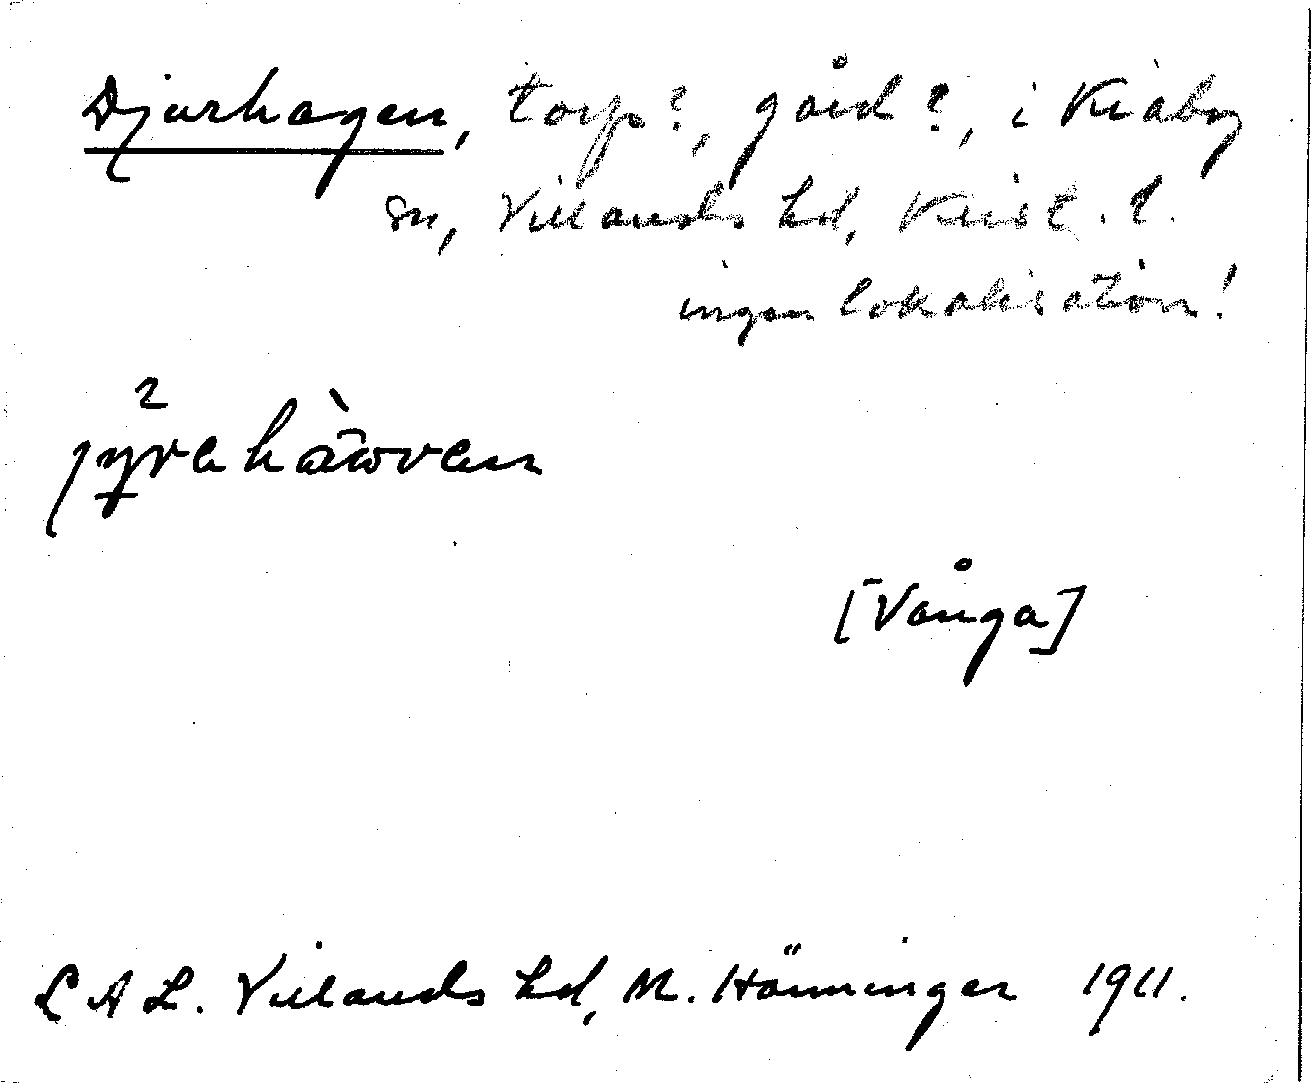 Djurhagen, torp?, gård?, i Kiaby
sn, Villands hd, Krist. l.
ingen lokalisation!
[Vånga]
LAL. Villands hd, M. Hänninger 1911.